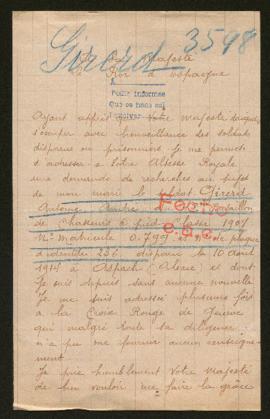 Girerd 3598
Sa Majesté
Le Roi d'Espagne
Pedir informes
Que se hace
Ayant appris que Votre Majesté daigne
s'occuper avec bienveillance des soldats
disparus ou prisonniers, je me permets
d'adresser à Votre Altesse Royale
une demande de recherches au sujet
de mon mari le Girerd
Antoine bataillon
de Chasseurs à pied Classe 1907
No Matricule 0.799 et No de plaque
d'identité 236 disparu le 10 août
1914 à Aspach (Alsace) et dont
je suis depuis sans aucune nouvelle
Je me suis adressée plusieurs fois
à la Croix Rouge de Genève
qui malgré toute sa diligence
n'a pu me fournir aucun renseigne-
ment.
Je prie humblement Votre Majesté
de bien vouloir me faire la grâce